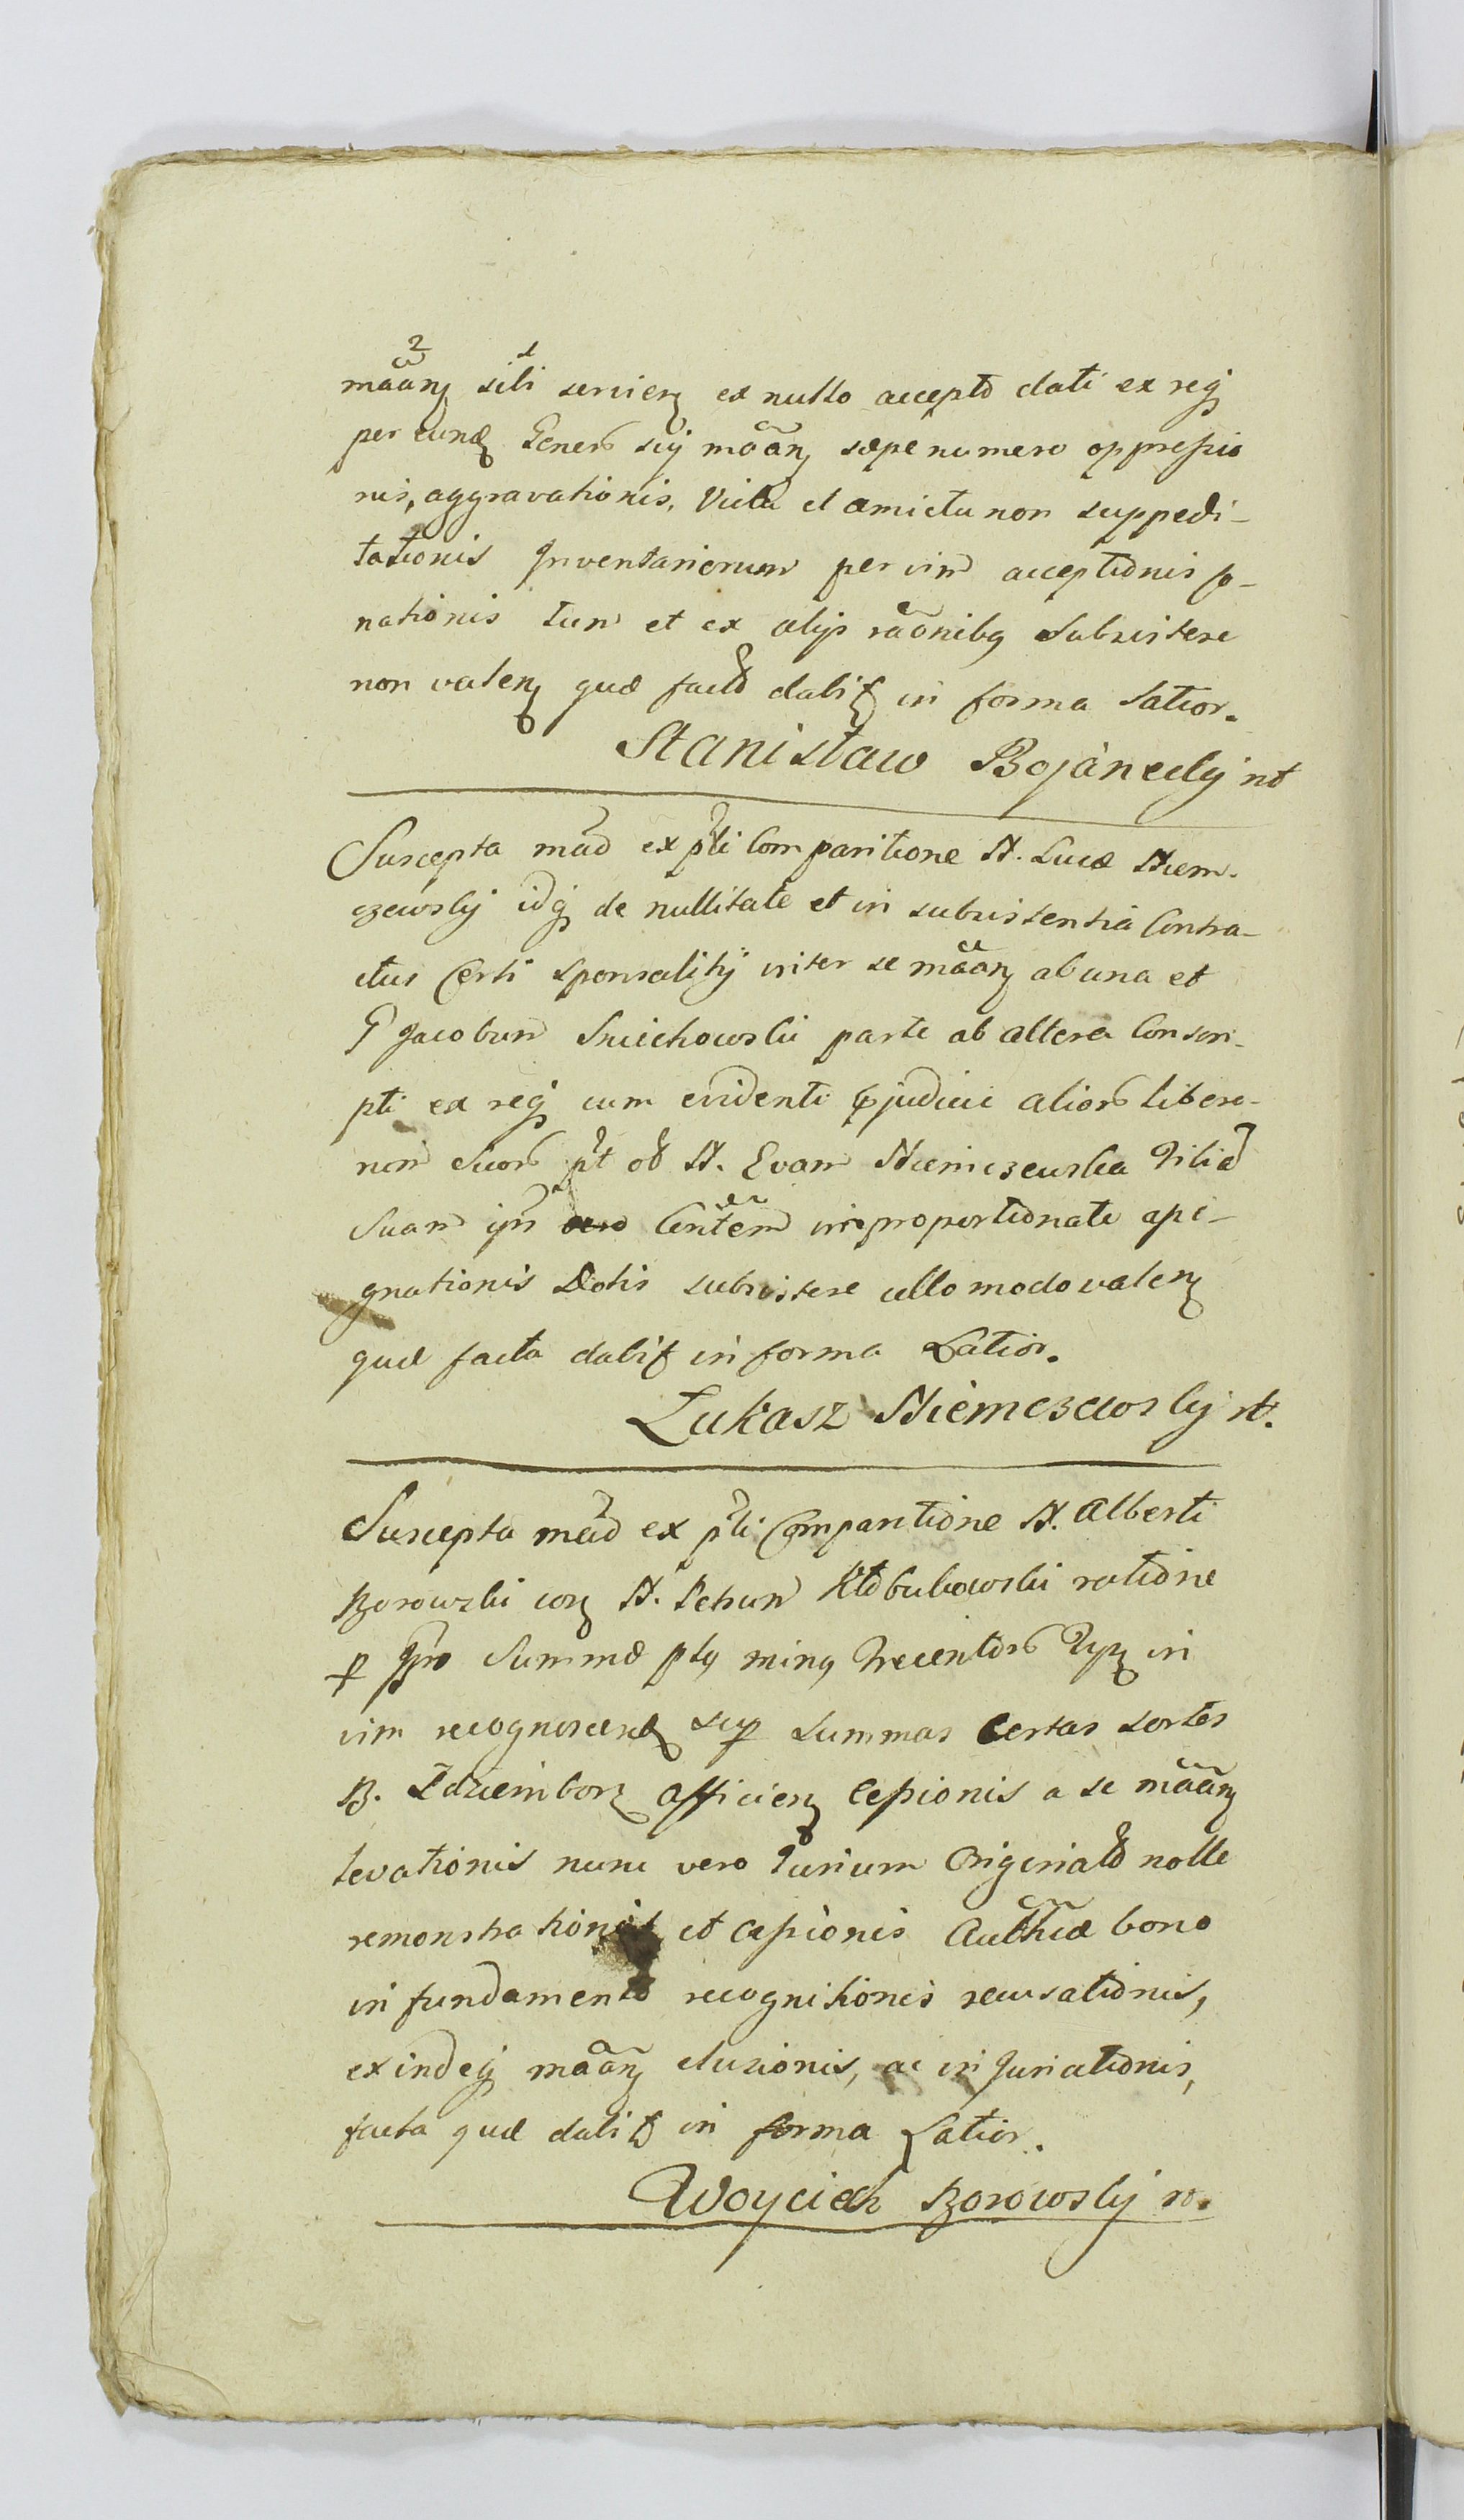 mãan sibi servien ex nullo accepto dati ex reg
per eund Gener suy mãan sæpe numero oppressio
nis, aggravationis, Victu et amictu non suppedi-
tationis Inventariorum per vim acceptionis
nationis tum et ex alijs rãonibq subsistere
non valen quæ facto dabit in forma Latior.
Stanisław Bojanecky
Suscepta mad ex pti Comparitione N. Lucæ Niem-
czewsky idq de nullitate et in subsistentia Contra-
ctus Certi Sponsalitij inter se mãan ab una et
G Jacobum Sniechowski parte ab altera Conscri-
pti ex reg cum evidenti pjudicio alior libero-
rum suor pt ob N. Evam Niemczewska Filiã
Suam improportionate assi-
gnationis Dotis subsistere ullo modo valen
quæ facta dabit in forma Latior.
Łukasz Niemczewsky
Suscepta mad ex pti Comparitione N. Alberti
Borowski con N. Petrum Kłobukowski ratione
Summæ plq minq Trecentor in
vim recognoscend sup summas Certas sortes
B. Zdziembor afficien Cessionis a se mãan
levationis nunc vero Jurium Originald nolle
remonstrationis et Cessionis Authcæ bono
in fundamento recognitionis recusationis,
exindeq mãan elusionis, ac injuriationis,
facta quæ dabit in forma Latior.
Woyciech Borowsky